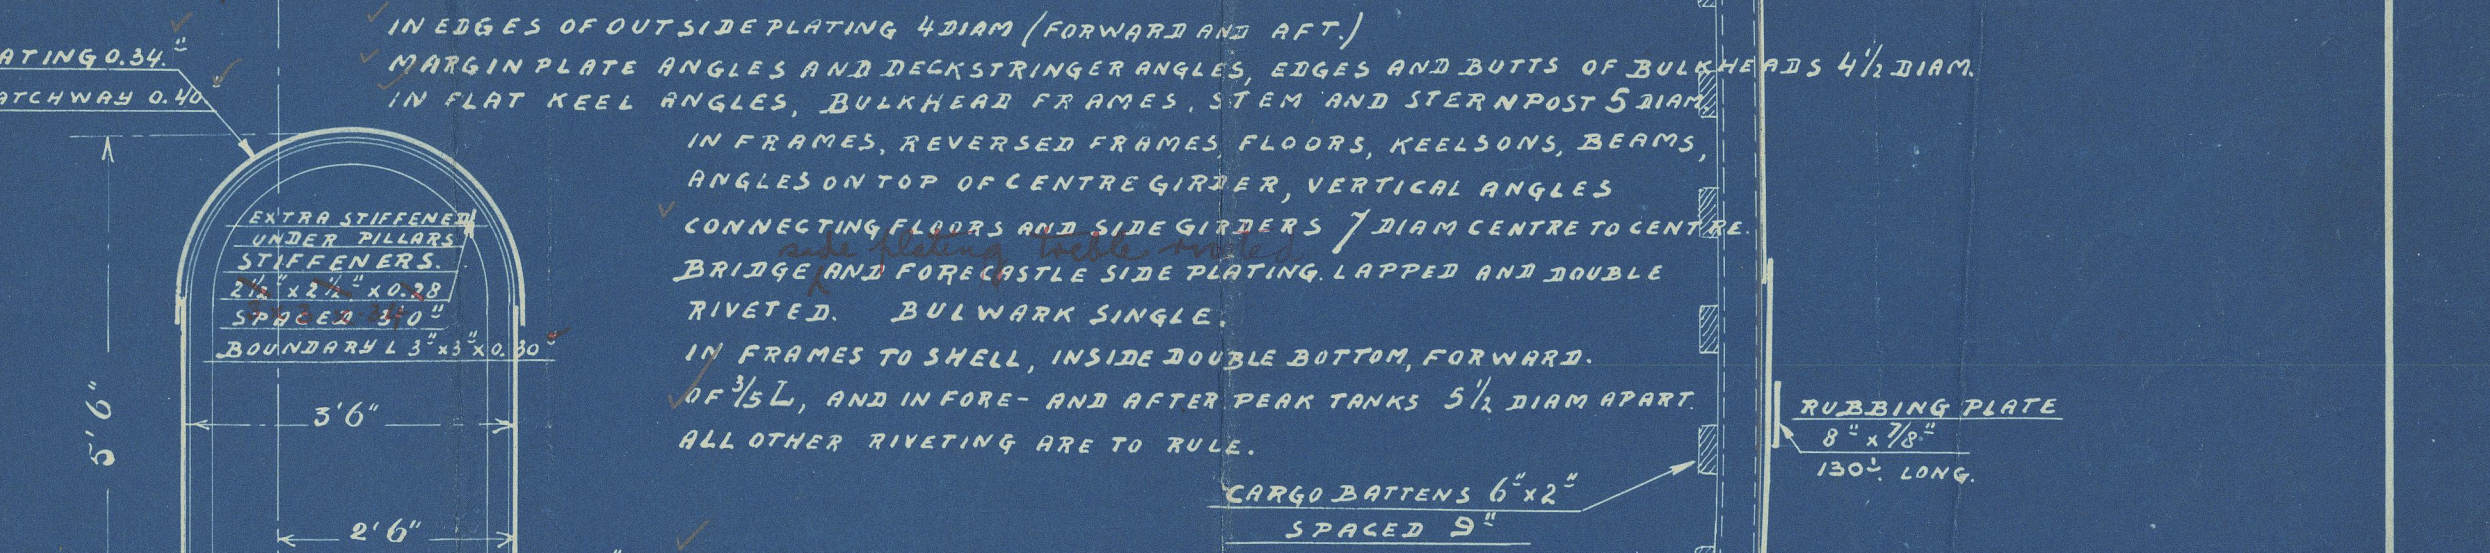 IN EDGES OF OUTSIDE PLATING 4 DIAM (FORWARD AND AFT.)
MARGIN PLATE ANGLES AND DECKSTRINGER ANGLES, EDGES AND BUTTS OF BULKHEADS 4 1/2 DIAM.
IN FLAT KEEL ANGLES, BULKHEAD FRAMES, STEM AND STERNPOST 5 DIAM.
IN FRAMES, REVERSED FRAMES, FLOORS, KEELSONS, BEAMS,
ANGLES ON TOP OF CENTRE GIRDER, VERTICAL ANGLES
CONNECTING FLOORS AND SIDE GIRDERS 7 DIAM CENTRE TO CENTRE.
side plating treble riveted
BRIDGE AND FORECASTLE SIDE PLATING. LAPPED AND DOUBLE
RIVETED. BULWARK SINGLE.
IN FRAMES TO SHELL, INSIDE DOUBLE BOTTOM, FORWARD.
OF 3/5 L, AND IN FORE- AND AFTER PEAK TANKS 5 1/2 DIAM APART.
ALL OTHER RIVETING ARE TO RULE.
ATING 0.34"
ATCHWAY 0.40"
EXTRA STIFFENED
UNDER PILLARS
STIFFENERS.
2 1/2" x 2 1/2" x 0.28
SPACED 3'0"
BOUNDARY L 3" x 3" x 0.30"
5'6"
3'6"
2'6"
CARGO BATTENS 6" x 2"
SPACED 9"
RUBBING PLATE
8" x 7/8"
130' LONG.